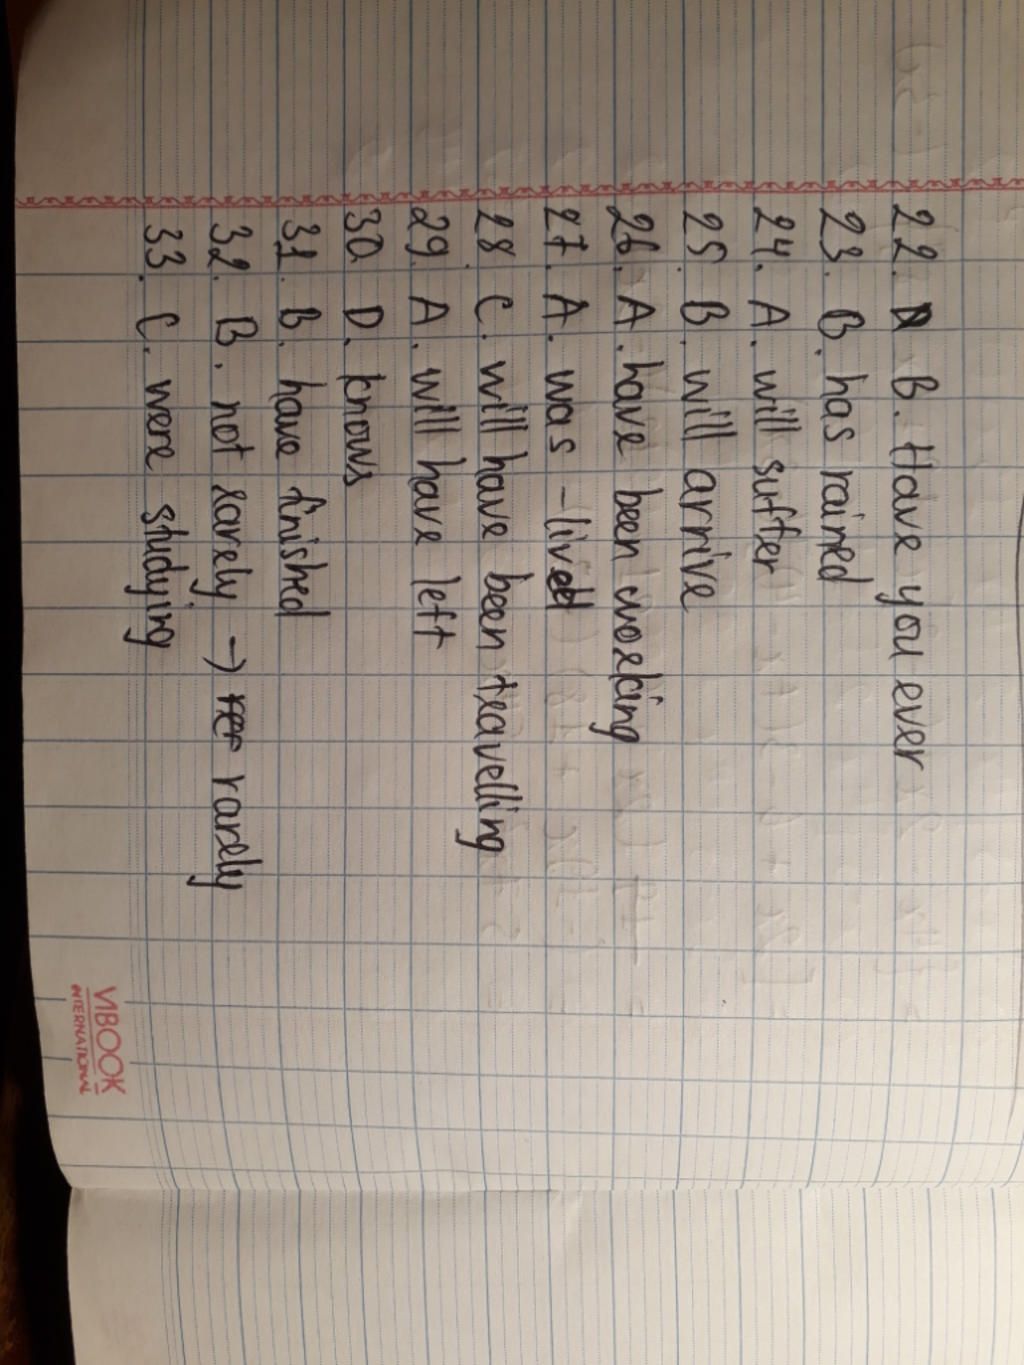 22. B. Have you ever
23. B. has rained
24. A. will suffer
25. B. will arrive
26. A. have been working
27. A. was - lived
28. C. will have been travelling
29. A. will have left
30 D. knows
31. B. have finished
32. B. not rarely → rarely
33. C. were studying
VIBOOK
INTERNATIONAL